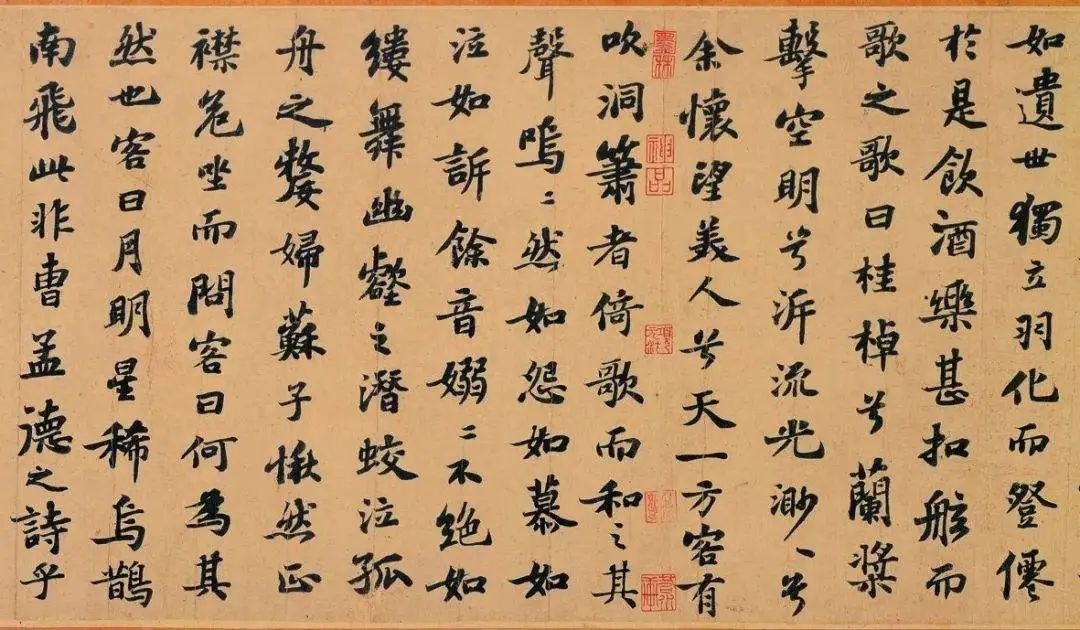 如遺世獨立羽化而登僊
於是飲酒樂甚扣舷而
歌之歌曰桂棹兮蘭槳
擊空明兮泝流光渺丶兮
余懷望美人兮天一方客有
吹洞簫者倚歌而和之其
聲嗚〻然如怨如慕如
泣如訴餘音嫋〻不絕如
縷舞幽壑之潛蛟泣孤
舟之嫠婦蘇子愀然正
襟危坐而問客曰何為其
然也客曰月明星稀烏鵲
南飛此非曹孟德之詩乎